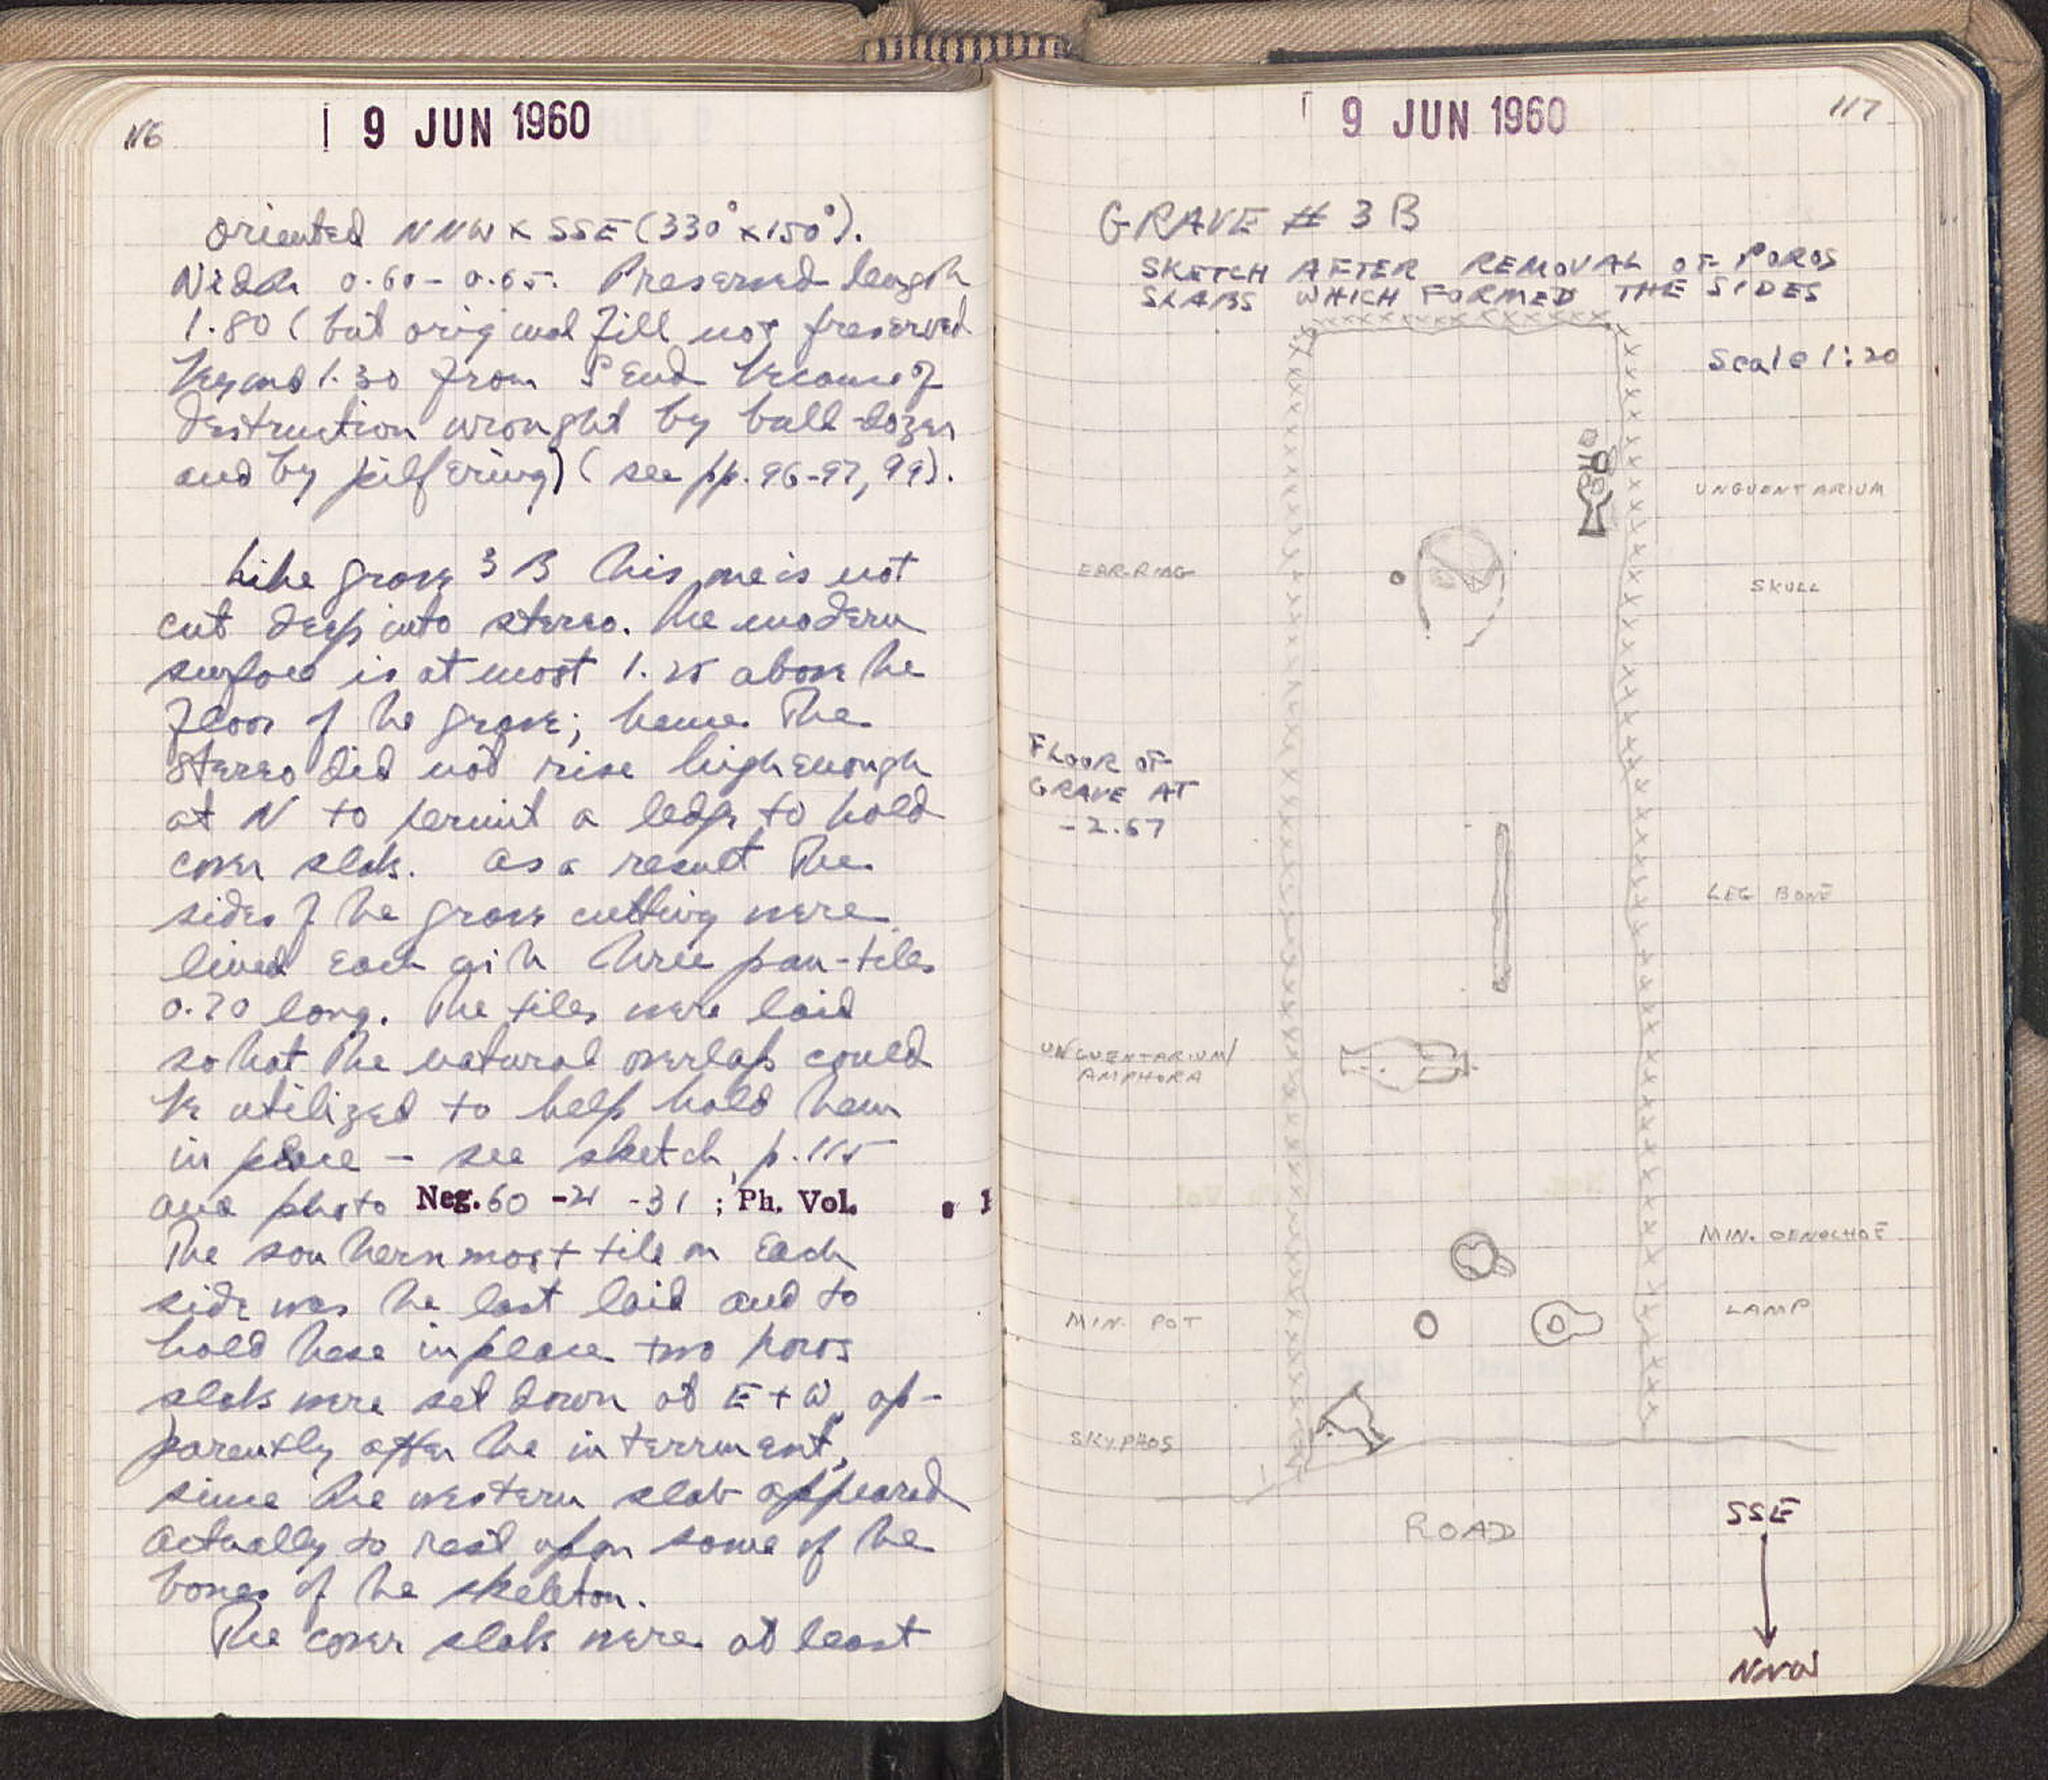 116
19 JUN 1960
oriented NNW x SSE (330° x 150°).
Width 0.60 - 0.65. Preserved length
1.80 (but original fill not preserved
beyond 1.30 from S end because of
destruction wrought by bull-dozer
and by pilfering) (see pp. 96-97, 99).
Like grave 3 B this one is not
cut deep into stereo. The modern
surface is at most 1.25 above the
floor of the grave; hence the
stereo did not rise high enough
at N to permit a ledge to hold
cover slabs. As a result the
sides of the grave cutting were
lined each with three pan-tiles
0.70 long. The tiles were laid
so that the natural overlap could
be utilized to help hold them
in place - see sketch, p. 115
and photo Neg. 60 - 21 - 31 ; Ph. Vol.
The southernmost tile on each
side was the last laid and to
hold these in place two poros
slabs were set down at E + W, ap-
parently after the interment,
since the western slab appeared
actually to rest upon some of the
bones of the skeleton.
The cover slabs were at least
19 JUN 1960
117
GRAVE # 3 B
SKETCH AFTER REMOVAL OF POROS
SLABS WHICH FORMED THE SIDES
Scale 1:20
UNGUENTARIUM
EARRING
SKULL
FLOOR OF
GRAVE AT
- 2.67
LEG BONE
UNGUENTARIUM/
AMPHORA
MIN. OENOCHOE
MIN. POT
LAMP
SKYPHOS
ROAD
SSE
NNW